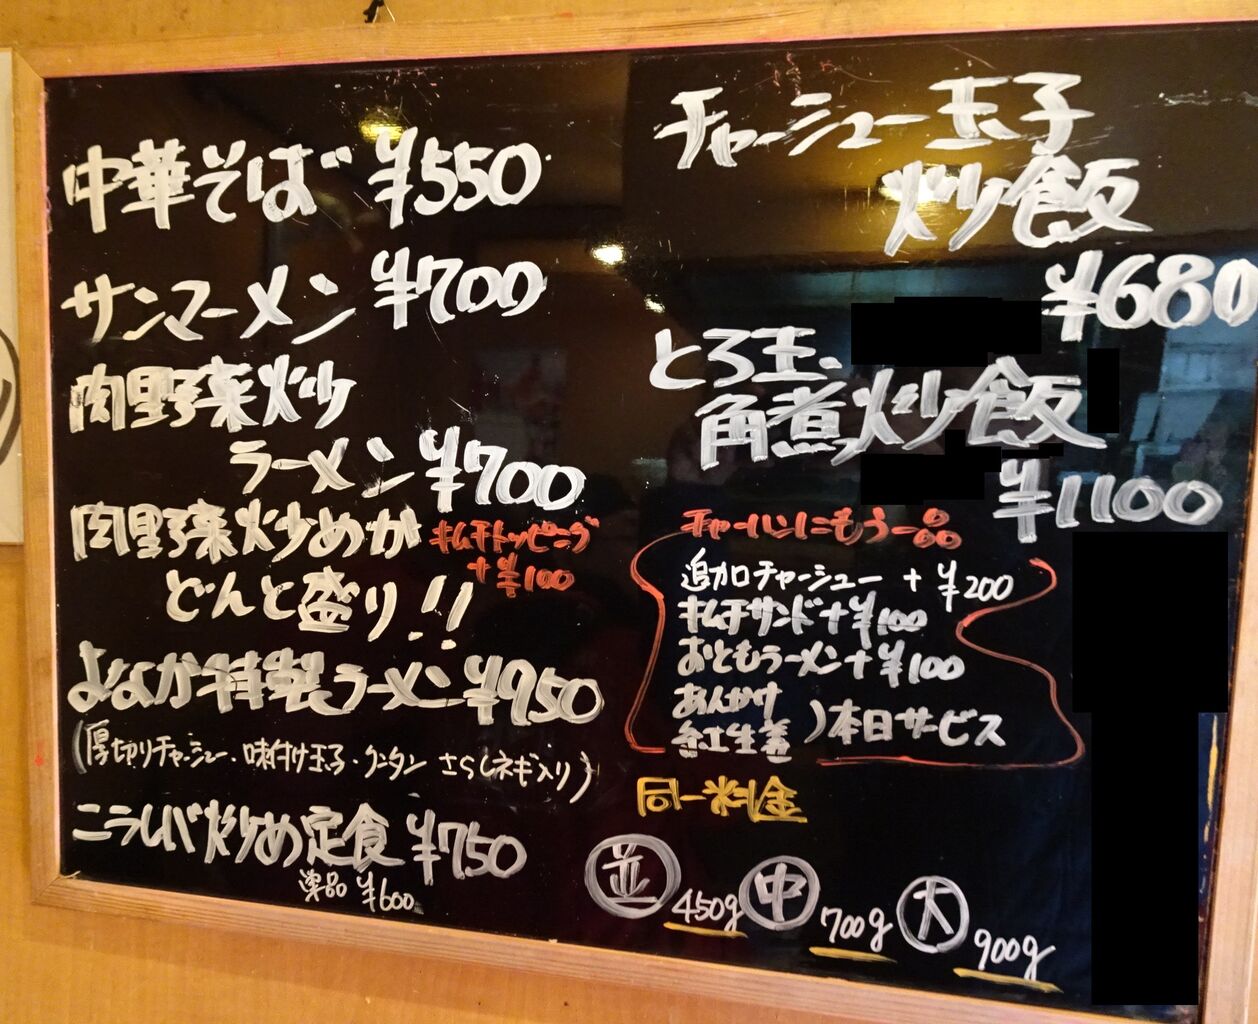 中華そば ¥550
サンマーメン ¥700
肉野菜炒
ラーメン ¥700
肉野菜炒めが
どんと盛り!!
キムチトッピング
+¥100
よなか特製ラーメン ¥950
(厚切りチャーシュー・味付け玉子・クンタン さらしネギ入り)
ニラレバ炒め定食 ¥750
単品 ¥600
チャーシュー玉子
炒飯
¥680
とろ玉、
角煮炒飯
¥1100
チャーハンにもう一品
追加チャーシュー + ¥200
キムチサンド + ¥100
おともラーメン + ¥100
あんかけ
紅生姜
)本日サービス
同一料金
並 450g 中 700g 大 900g